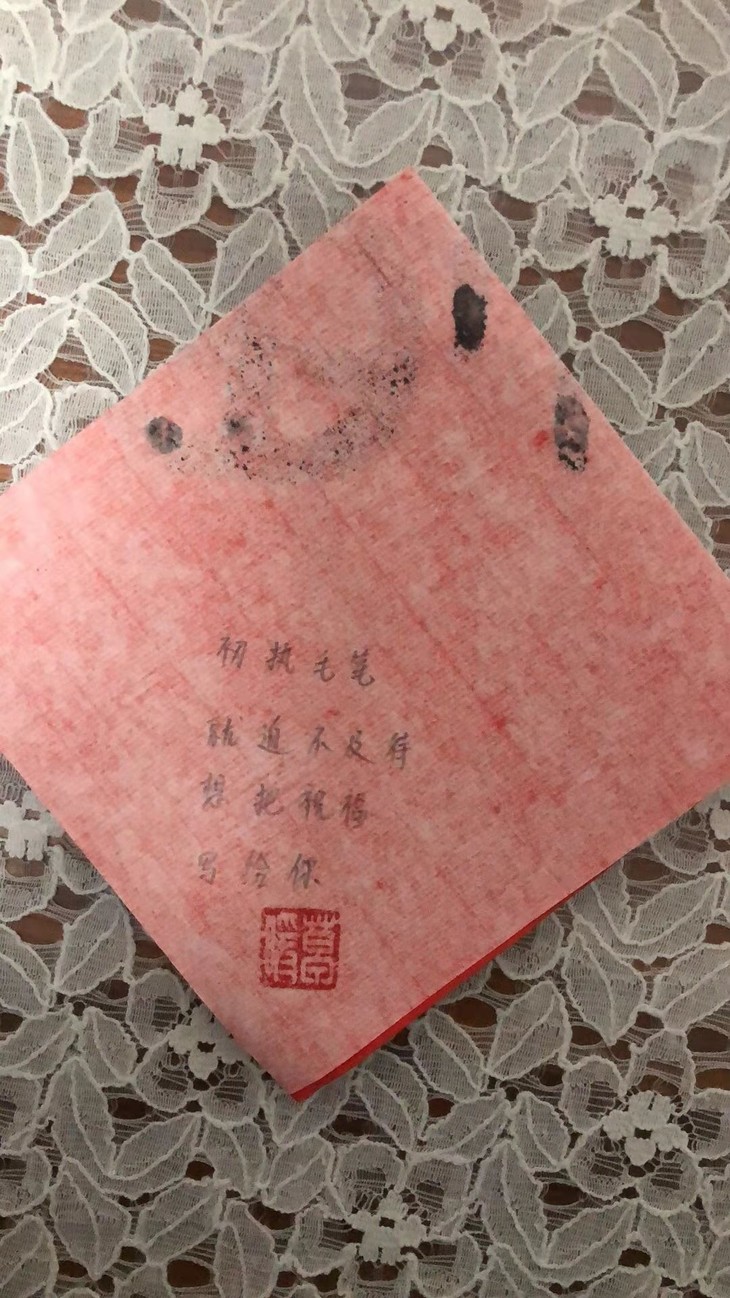 初执毛笔
就迫不及待
想把祝福
写给你